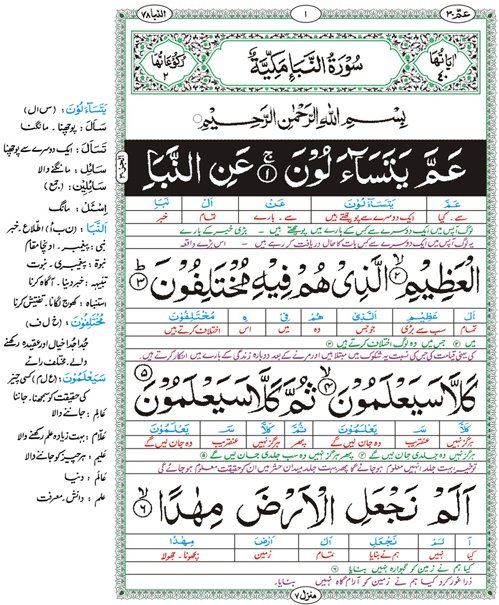 النبا ٧٨
١
عمّ ٣٠
اٰیَاتُهَا ٤٠
سُوْرَةُ النَّبَاِ مَكِّيَّةٌ
رُكُوْعَاتُهَا ٢
بِسْمِ اللهِ الرَّحْمٰنِ الرَّحِيْمِ
عَمَّ يَتَسَآءَلُوْنَ ۚ ١ عَنِ النَّبَاِ
عَمَّ يَتَسَآءَلُوْنَ عَنْ اَلْ نَبَا
سے۔ کیا ایک دوسرے سے پوچھتے ہیں سے۔ بارے تمام خبر
لوگ آپس میں ایک دوسرے سے کس کے بارے میں پوچھتے ہیں ۔ بڑی خبر کے بارے
یہ لوگ آپس میں ایک دوسرے سے کس بات کا حال دریافت کر رہے ہیں ۔ اس بڑے واقعہ
الْعَظِيْمِ ۙ ٢ الَّذِيْ هُمْ فِيْهِ مُخْتَلِفُوْنَ ؕ ٣
اَلْ عَظِيْمِ الَّذِيْ هُمْ فِيْ هِ مُخْتَلِفُوْنَ
تمام سب سے بڑی جو جس وہ میں اس اختلاف کرتے ہیں
میں ٢ جس میں وہ لوگ اختلاف کرتے ہیں ٣
کی یعنی قیامت کی جس کی نسبت یہ شکوک میں مبتلا ہیں اور مرنے کے بعد دوبارہ زندگی کے بارے میں انکار کرتے ہیں۔
كَلَّا سَيَعْلَمُوْنَ ۙ ٤ ثُمَّ كَلَّا سَيَعْلَمُوْنَ ٥
كَلَّا سَ يَعْلَمُوْنَ ثُمَّ كَلَّا سَ يَعْلَمُوْنَ
ہرگز نہیں عنقریب وہ جان لیں گے پھر ہرگز نہیں عنقریب وہ جان لیں گے
ہرگز نہیں وہ جلدی جان لیں گے ٤ پھر ہرگز نہیں وہ سب جلدی جان لیں گے ٥
تو خیر بہت جلد انہیں معلوم ہو جائے گا پھر بہت جلد میدان حشر میں ان کو حقیقت معلوم ہو جائے گی
اَلَمْ نَجْعَلِ الْاَرْضَ مِهٰدًا ۙ ٦
اَ لَمْ نَجْعَلِ اَلْ اَرْضَ مِهٰدًا
کیا نہیں ہم نے بنایا تمام زمین بچھونا۔ جھولا
کیا ہم نے زمین کو گہوارہ نہیں بنایا ٦
ذرا غور کرو کیا ہم نے زمین کو آرام گاہ نہیں بنایا۔
منزل ٧
يَتَسَآءَلُوْنَ: (س ا ل)
سَاَلَ: پوچھنا۔ مانگنا
تَسَاَلَ: ایک دوسرے سے پوچھنا
سَائِلٌ: مانگنے والا
سَائِلِيْنَ: (جمع)
اِسْئَلْ: مانگ
اَلنَّبَاُ: (ن ب أ) اطلاع۔ خبر
نبی: پیغمبر۔ اونچا مقام
نبوۃ: پیغمبری۔ نبوت
تنبیہ: خبر دینا۔ آگاہ کرنا
استنباہ: کھوج لگانا۔ تفتیش کرنا
مُخْتَلِفُوْنَ: (خ ل ف)
جدا جدا خیال اور عقیدہ رکھنے
والے۔ مختلف رائے
سَيَعْلَمُوْنَ: (ع ل م) کسی چیز
کی حقیقت کو سمجھنا۔ جاننا
عَالِم: جاننے والا
عَلَّام: بہت زیادہ علم رکھنے والا
عَلِیم: ہر چیز کو جاننے والا
عَالَم: دنیا
علم: دانش۔ معرفت